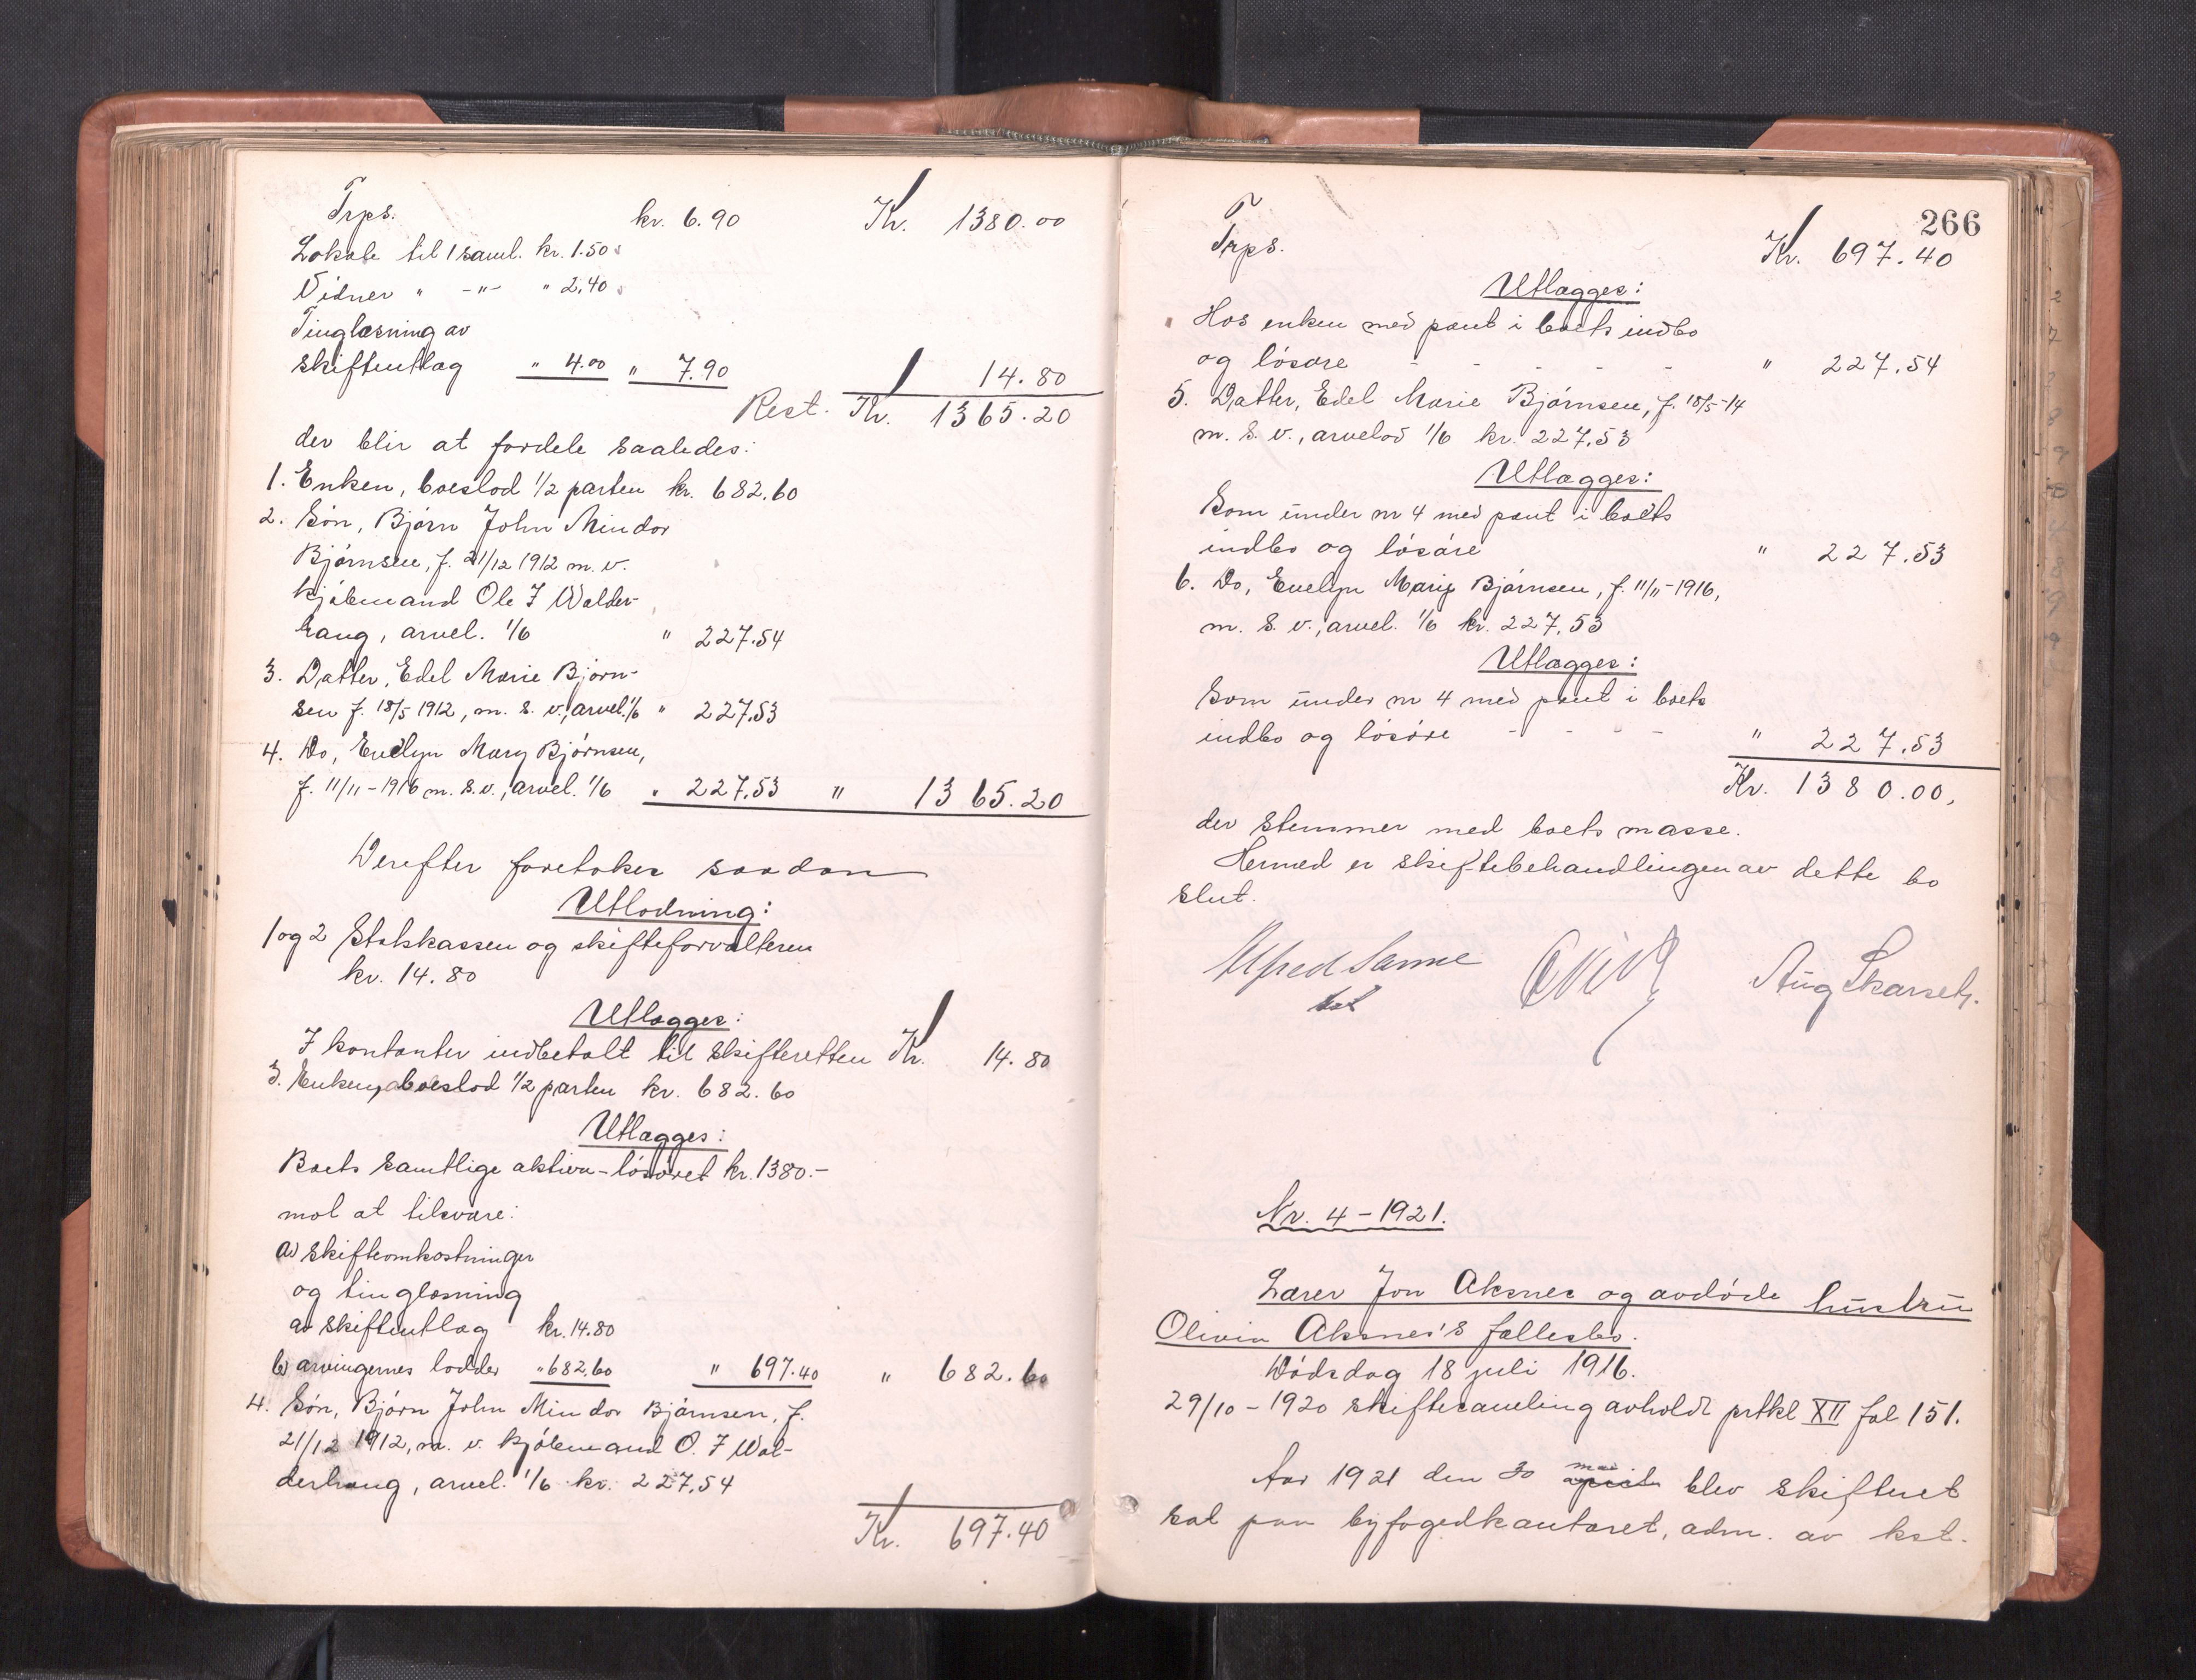 Trps. kr. 6.90 Kr. 1380.00
Lokale til 1 saml. kr. 1.50
Vidner " -"- " 2.40
Tinglæsning av
skifteutlæg " 4.00 " 7.90 14.80
Rest. Kr. 1365.20
der blir at fordele saaledes:
1. Enken, boeslod 1/2 parten kr. 682.60
2. Søn, Bjørn John Mindor
Bjørnsen, f. 21/12 1912 m. v.
kjøbmand Ole J Walder-
haug, arvel. 1/6 " 227.54
3. Datter, Edel Marie Bjørn-
sen f. 18/5 1912, m. s. v., arvel. 1/6 " 227.53
4. Do, Evelyn Mary Bjørnsen,
f. 11/11-1916 m. s. v., arvel. 1/6 " 227.53 " 1365.20
Derefter foretokes saadan
Utlodning:
1 og 2 Statskassen og skifteforvalteren
kr. 14.80
Utlægges:
I kontanter indbetalt til skifteretten Kr. 14.80
3. Enken, boeslod 1/2 parten kr. 682.60
Utlægges:
Boets samtlige aktiva - løsøret kr. 1380.-
mot at tilsvare:
a) skifteomkostninger
og tinglæsning
av skifteutlæg kr. 14.80
b) arvingernes lodder " 682.60 " 697.40 " 682.60
4. Søn, Bjørn John Mindor Bjørnsen, f.
21/12 1912, m. v. kjøbmand O. J Wal-
derhaug, arvel. 1/6 kr. 227.54
Kr. 697.40
266
Trps. Kr. 697.40
Utlægges:
Hos enken med pant i boets indbo
og løsøre - - - - - " 227.54
5. Datter, Edel Marie Bjørnsen, f. 18/5-14
m. s. v., arvelod 1/6 kr. 227.53
Utlægges:
Som under nr 4 med pant i boets
indbo og løsøre " 227.53
6. Do, Evelyn Mary Bjørnsen, f. 11/11-1916,
m. s. v., arvel. 1/6 kr. 227.53
Utlægges:
Som under nr 4 med pant i boets
indbo og løsøre - - - - " 227.53
Kr. 1380.00,
der stemmer med boets masse.
Hermed er skiftebehandlingen av dette bo
slut.
Alfred Sanne Aug Skarseth.
kst
Nr. 4 - 1921.
Lærer Jon Aksnes og avdøde hustru
Olivia Aksnes's fællesbo.
Dødsdag 18 juli 1916.
29/10 - 1920 skiftesamling avholdt prtkl XII fol 151.
Aar 1921 den 30 april mai blev skifteret
sat paa byfogedkontoret, adm. av kst.